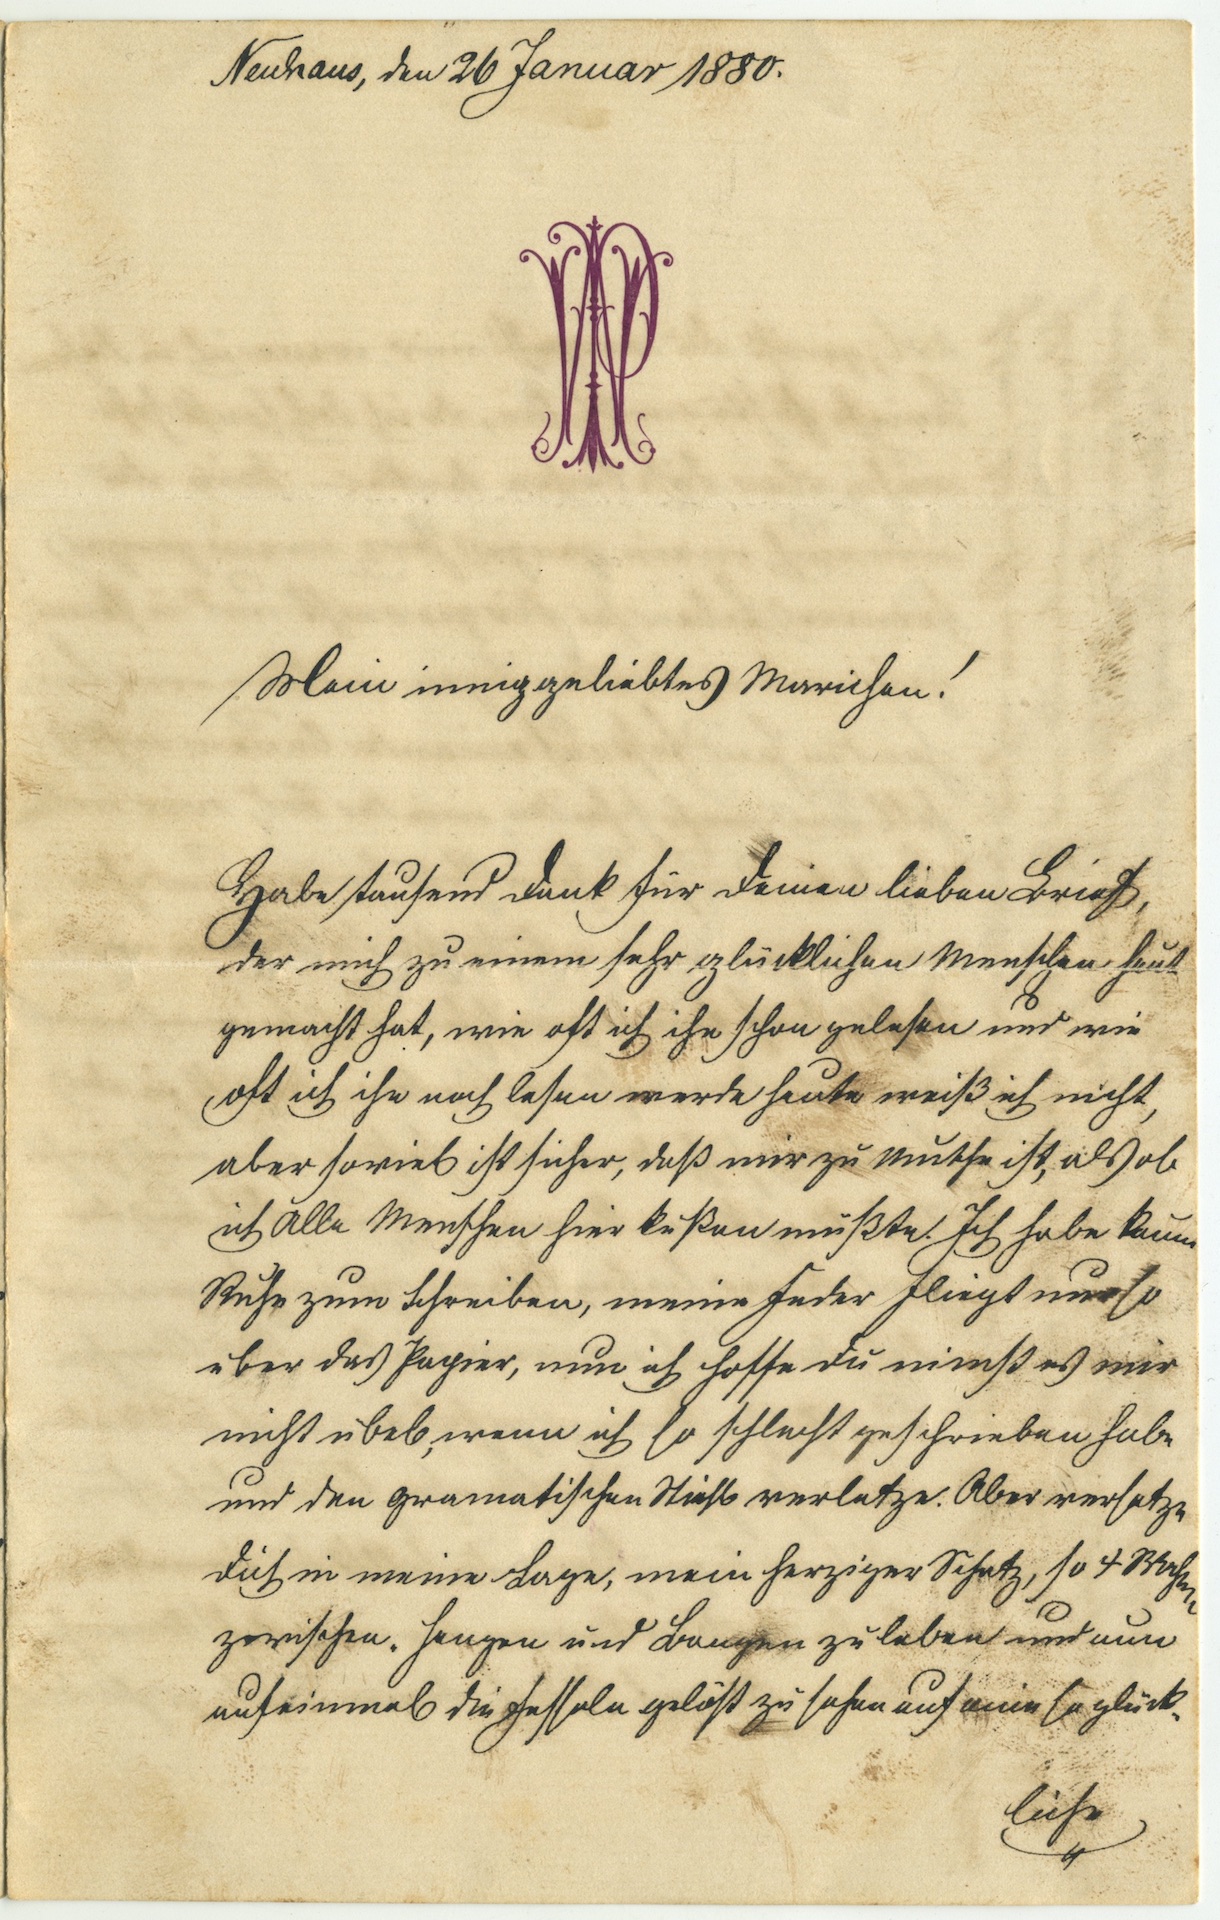 Neuhaus, den 26 Januar 1880.
Mein inniggeliebtes Mariechen!
Habe tausend Dank für Deinen lieben Brief,
der mich zu einem sehr glücklichen Menschen heut
gemacht hat, wie oft ich ihn schon gelesen und wie
oft ich ihn noch lesen werde heute weiß ich nicht,
aber soviel ist sicher, daß mir zu Muthe ist, als ob
ich alle Menschen hier küßen müßte. Ich habe kaum
Ruhe zum Schreiben, meine Feder fliegt nur so
über das Papier, nun ich hoffe Du nimst es mir
nicht übel, wenn ich so schlecht geschrieben habe
und den gramatischen Stiehl verletze. Aber versetze
Dich in meine Lage, mein herziger Schatz, so 4 Wochen
zwischen Hangen und Bangen zu leben und nun
aufeinmal die Fesseln gelöst zu sehen auf eine so glück-
liche